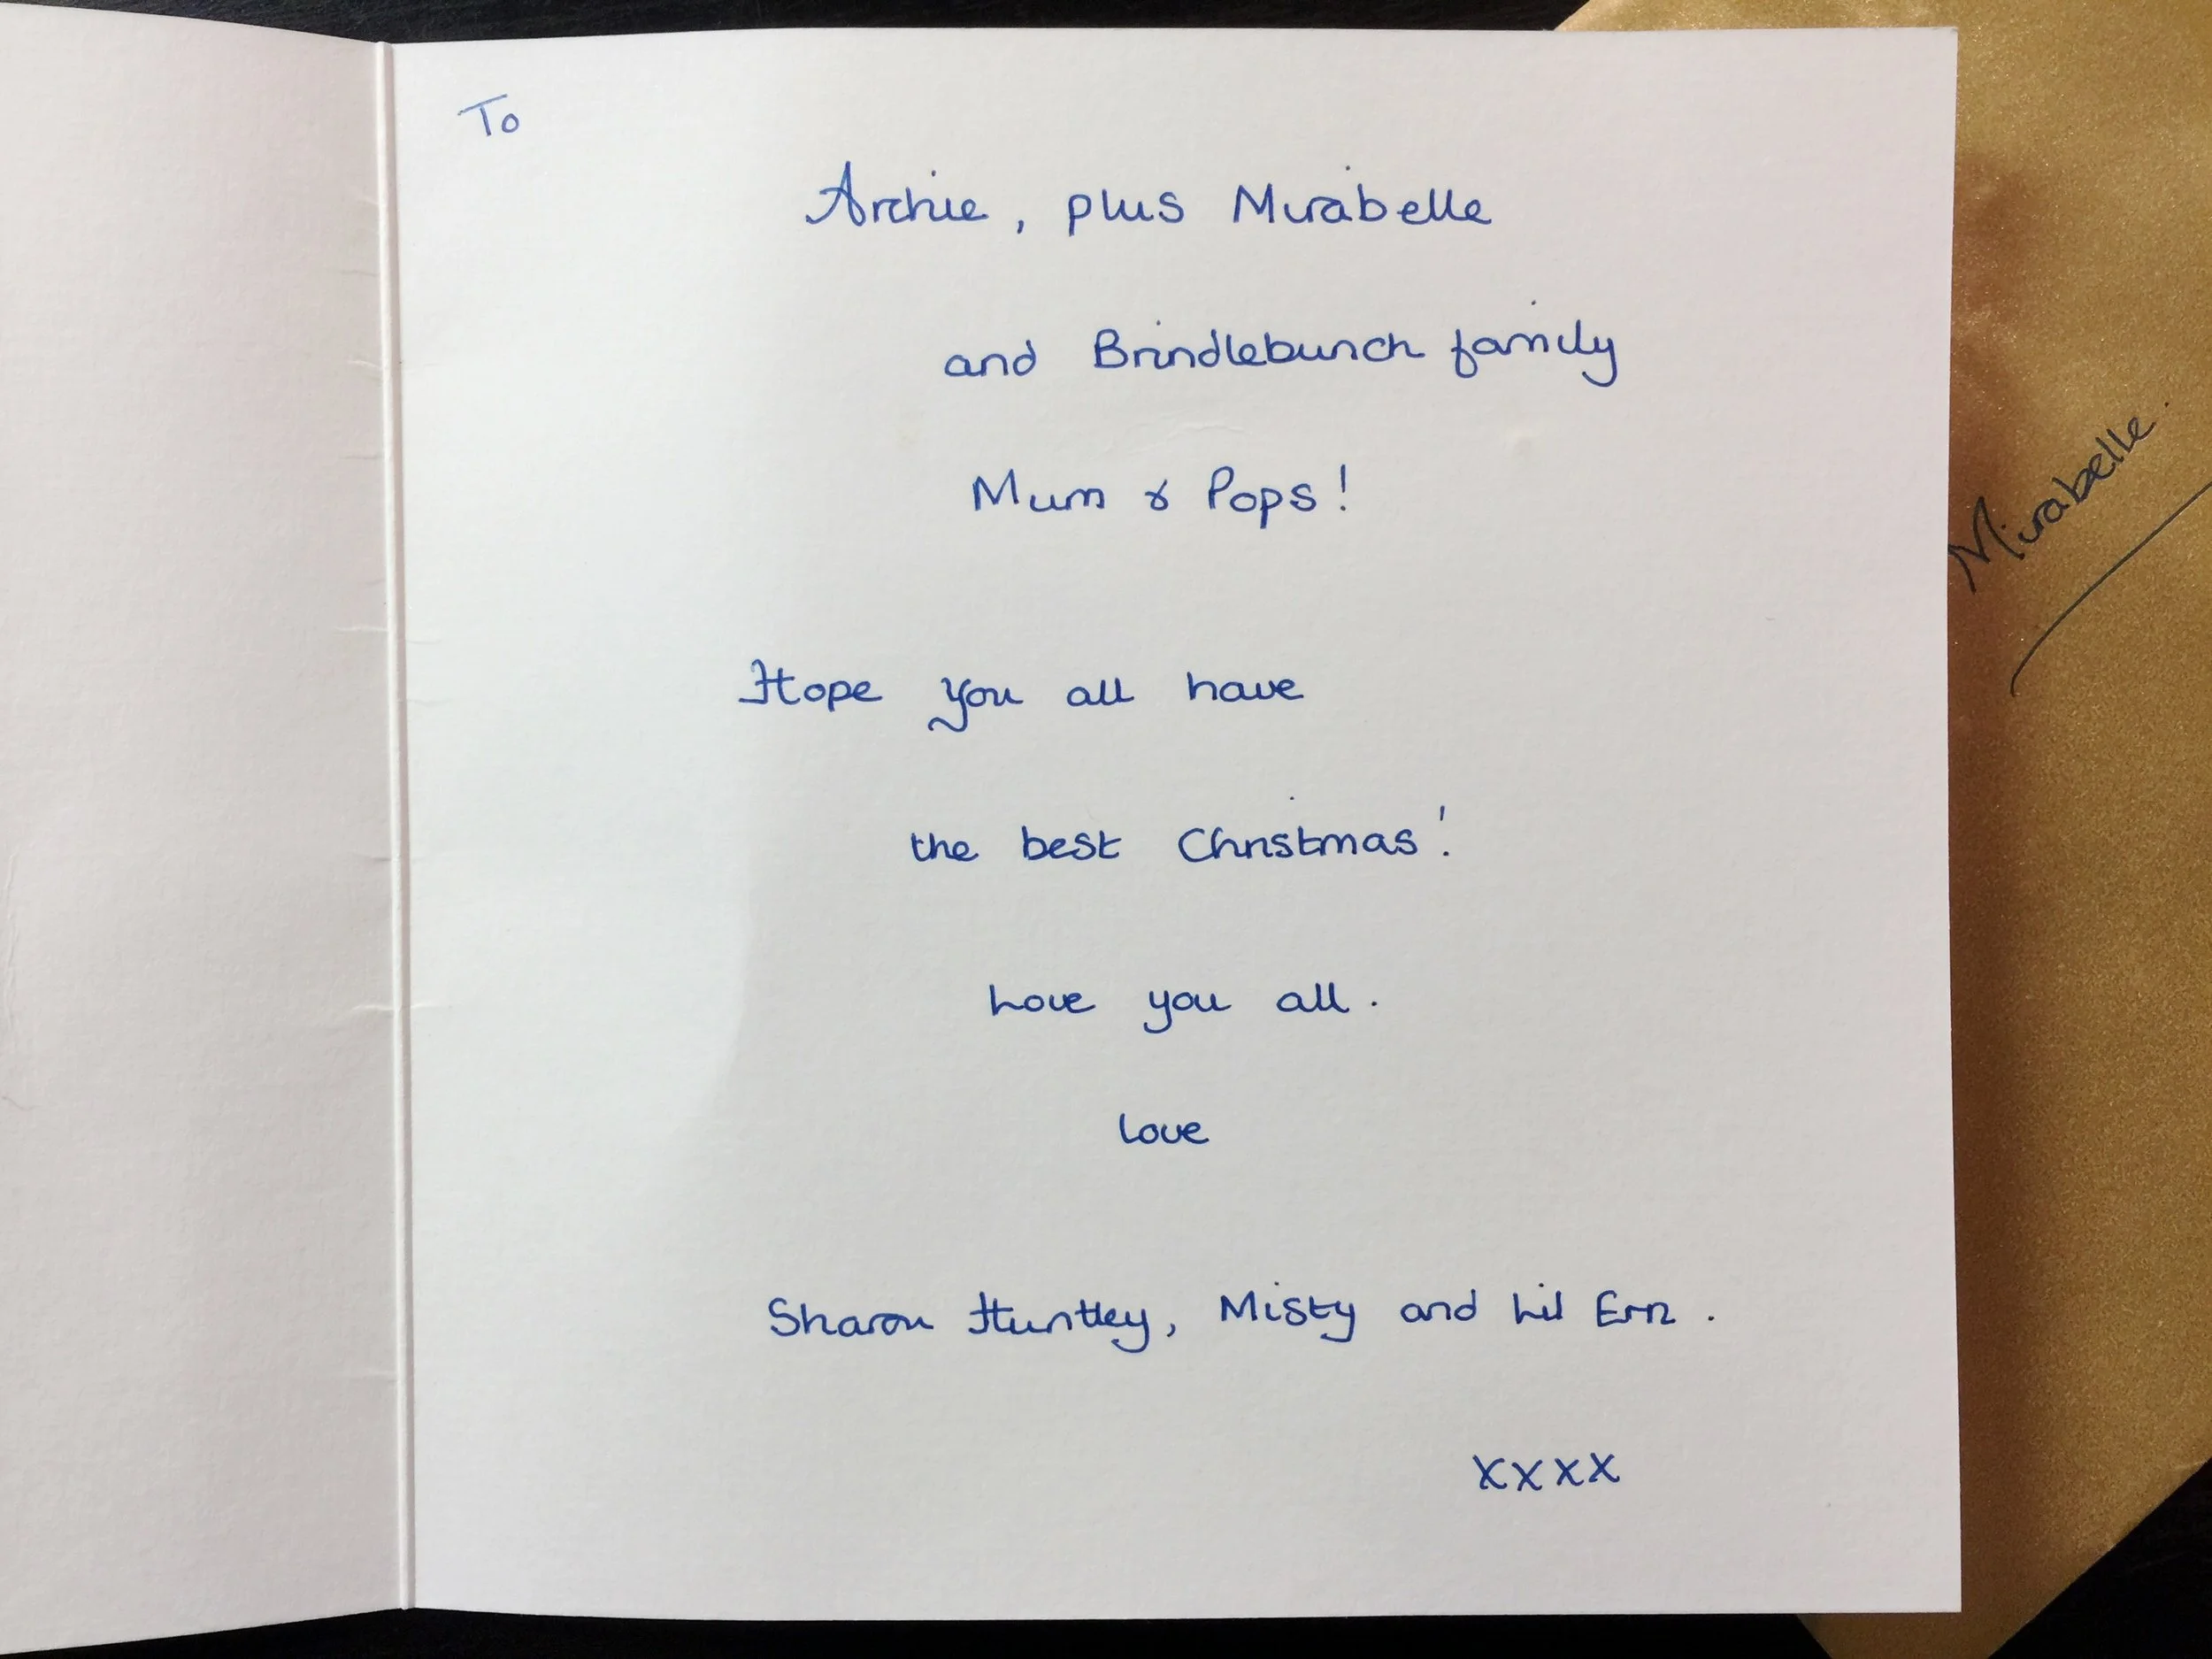 To
Archie, plus Mirabelle
and Brindlebunch family
Mum & Pops!
Hope you all have
the best Christmas!
Love you all.
Love
Sharon Huntley, Misty and Lil Ern.
xxxx
Mirabelle.